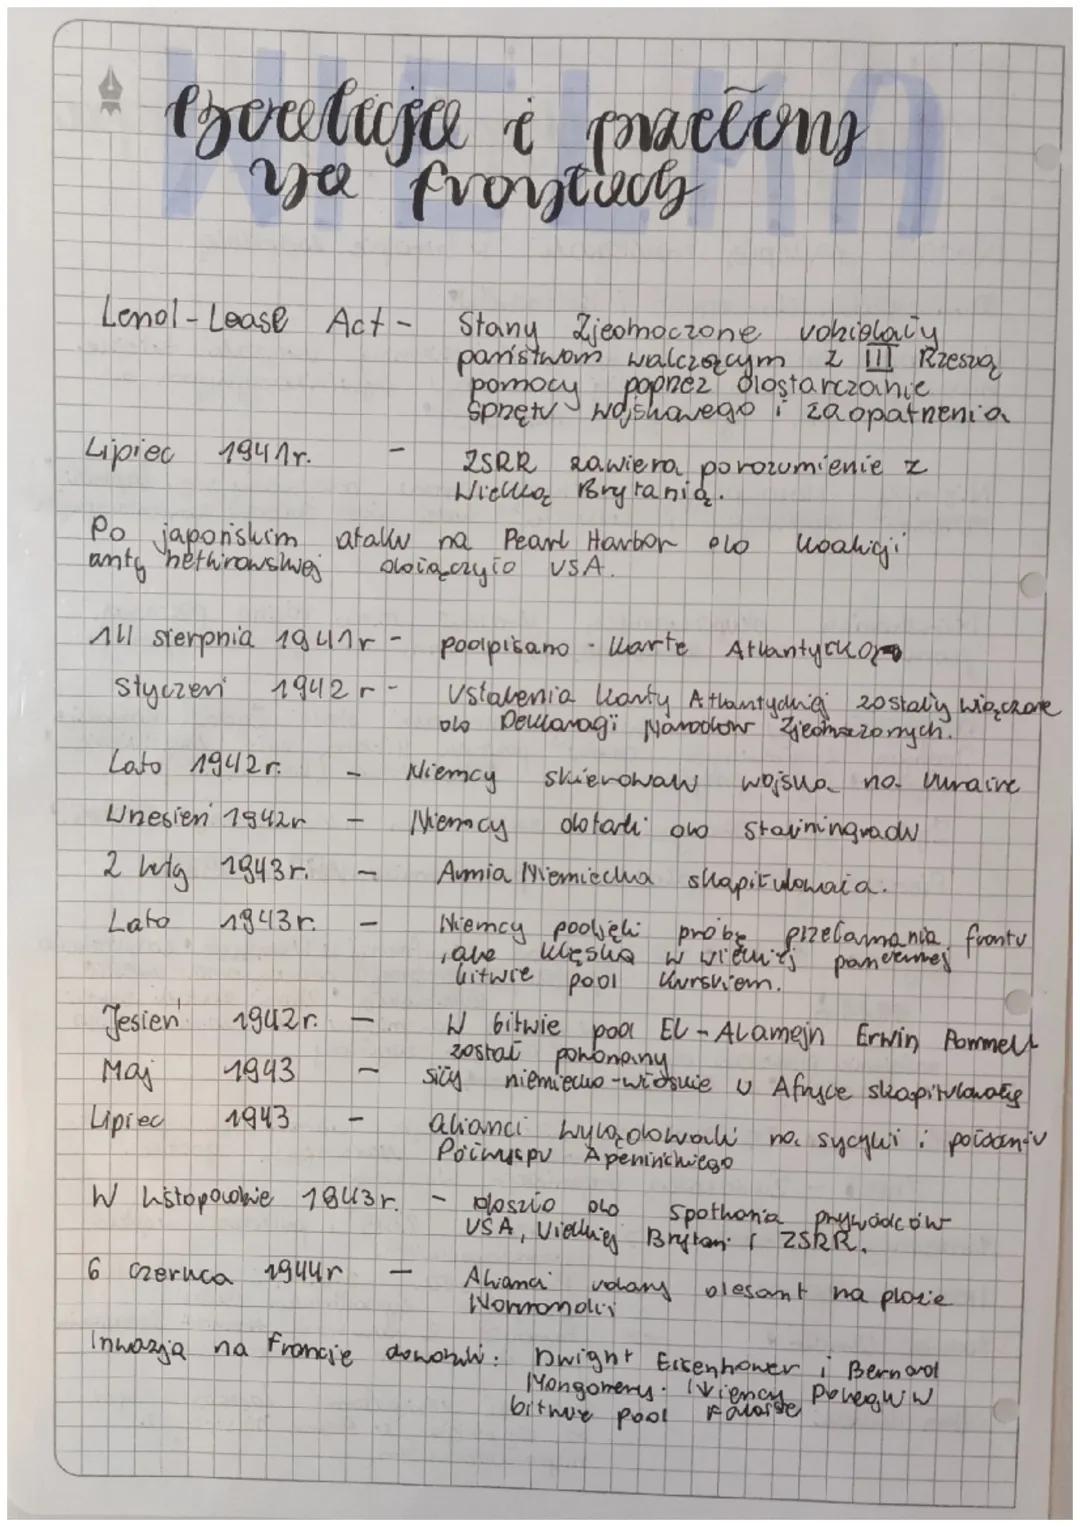 WIELKA
koalicja i przełomy
na frontach
Lend-Lease Act - Stany Zjednoczone udzielały
państwom walczącym z III Rzeszą
pomocy poprzez dostarczanie
sprzętu wojskowego i zaopatrzenia
Lipiec 1941r. - ZSRR zawiera porozumienie z
Wielką Brytanią.
Po japońskim ataku na Pearl Harbor do koalicji
anty hetlirowskiej dołączyło USA.
14 sierpnia 1941r - podpisano - Karte Atlantycką
Styczeń 1942r - Ustalenia Karty Atlantyckiej zostały włączone
do Deklaracji Narodów Zjednoczonych.
Lato 1942r. - Niemcy skierowali wojska na Ukraine
Wrzesień 1942r - Niemcy dotarli do Stalingradu
2 luty 1943r. - Armia Niemiecka skapitulowała.
Lato 1943r. - Niemcy podjęli próbę przełamania frontu
, ale klęska w wielkiej pancernej
bitwie pod Kurskiem.
Jesień 1942r. - W bitwie pod El-Alamejn Erwin Rommell
został pokonany
Maj 1943 - siły niemiecko-włoskie w Afryce skapitulowały
Lipiec 1943 - alianci wylądowali na sycylii i południu
Półwyspu Apenińskiego
W listopadzie 1943r. - doszło do spotkania przywódców
USA, Wielkiej Brytani i ZSRR.
6 czerwca 1944r - Alianci udany desant na plaże
Normandii
Inwazją na Francję dowodzili: Dwight Eisenhower i Bernard
Mongomery. Niemcy Polegli w
bitwie pod Falaise